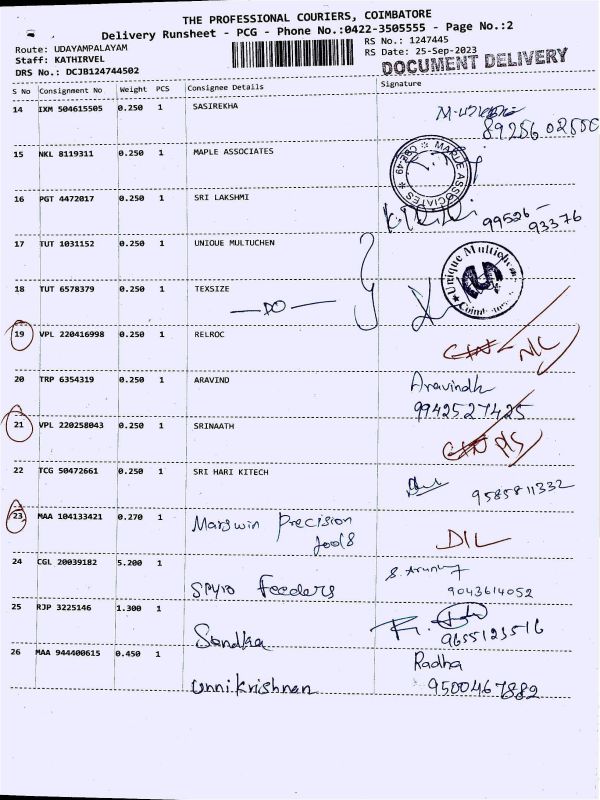 THE PROFESSIONAL COURIERS, COIMBATORE
Delivery Runsheet - PCG - Phone No.:0422-3505555 - Page No.:2
Route: UDAYAMPALAYAM
RS No.: 1247445
Staff: KATHIRVEL
RS Date: 25-Sep-2023
DRS No.: DCJB124744502
DOCUMENT DELIVERY
S No Consignment No Weight PCS Consignee Details Signature
14 IXM 504615505 0.250 1 SASIREKHA
89256 02550
15 NKL 8119311 0.250 1 MAPLE ASSOCIATES
MAPLE ASSOCIATES
16 PGT 4472017 0.250 1 SRI LAKSHMI
99526-
93376
17 TUT 1031152 0.250 1 UNIQUE MULTUCHEN
Unique Multichem
18 TUT 6578379 0.250 1 TEXSIZE
—DO—
19 VPL 220416998 0.250 1 RELROC
N/C
20 TRP 6354319 0.250 1 ARAVIND Aravindh
9942527425
21 VPL 220258043 0.250 1 SRINAATH
22 TCG 50472661 0.250 1 SRI HARI KITECH
9585811332
23 MAA 104133421 0.270 1 Margwin Precision
Tools
DIL
24 CGL 20039182 5.200 1
Spyro Feeders
9043614052
25 RJP 3225146 1.300 1
Sandha
9655123516
26 MAA 944400615 0.450 1 Radha
Unnikrishnan 9500467882